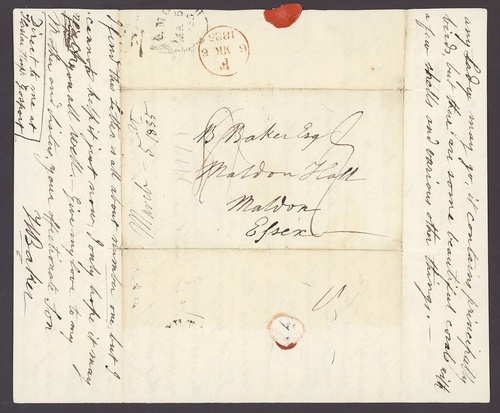 any Lady may go, it contains principally
birds but there are some beautiful corals with
a few shells and various other things. —
F
6 MR 6
1835
B Baker Esqr
Maldon Hall
Maldon
Essex
I find this Letter is all about number one, but I
cannot help it just now, I only hope it may
you all well — Give my love to my
Mother and Sister, your affectionate Son
Baker
Direct to me at
Gosport